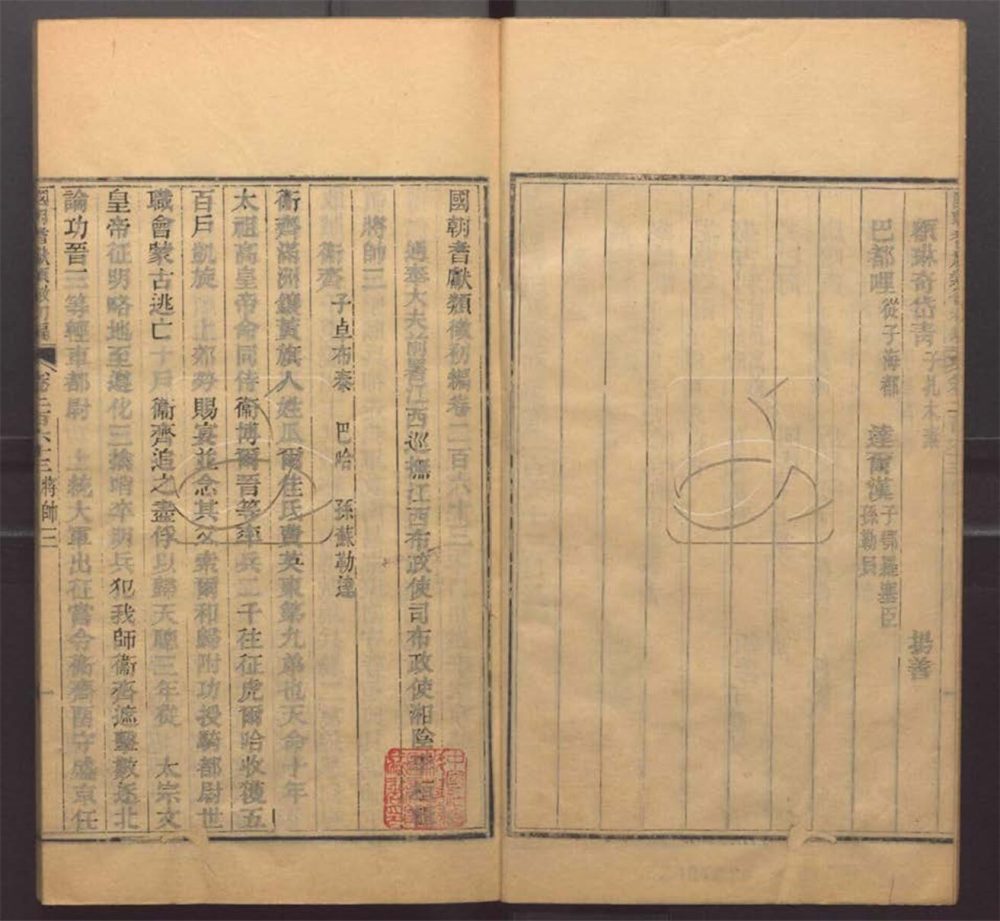 額琳奇岱青 子扎木素
巴都哩 從子海都 達爾漢 子鄂羅塞臣 孫勒貝 揚善
國朝耆獻類徵初編卷二百六十三
通奉大夫前署江西巡撫江西布政使司布政使湘陰李桓輯
將帥三
衛齊 子卓布泰 巴哈 孫蘇勒達
衛齊滿洲鑲黃旗人姓瓜爾佳氏費英東第九弟也天命十年
太祖高皇帝命同侍衛博爾晉等率兵二千往征虎爾哈收獲五
百戶凱旋 上郊勞賜宴並念其父索爾和歸附功授騎都尉世
職會蒙古逃亡十戶衛齊追之盡俘以歸天聰三年從 太宗文
皇帝征明略地至遵化三擒哨卒明兵犯我師衛齊遮擊數逐北
論功晉三等輕車都尉 上統大軍出征嘗令衛齊留守盛京任
國朝耆獻類徵初編 卷二百六十三 將帥三 一